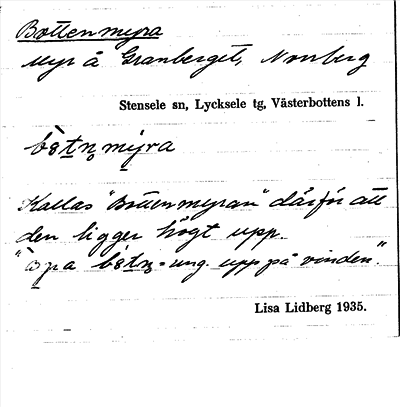 Bottenmyra
Myr å Granberget, Norrberg
Stensele sn, Lycksele tg, Västerbottens l.
mỳra
Kallas "Bottenmyran" därför att
den ligger högt upp.
= ung. upp på vinden."
Lisa Lidberg 1935.